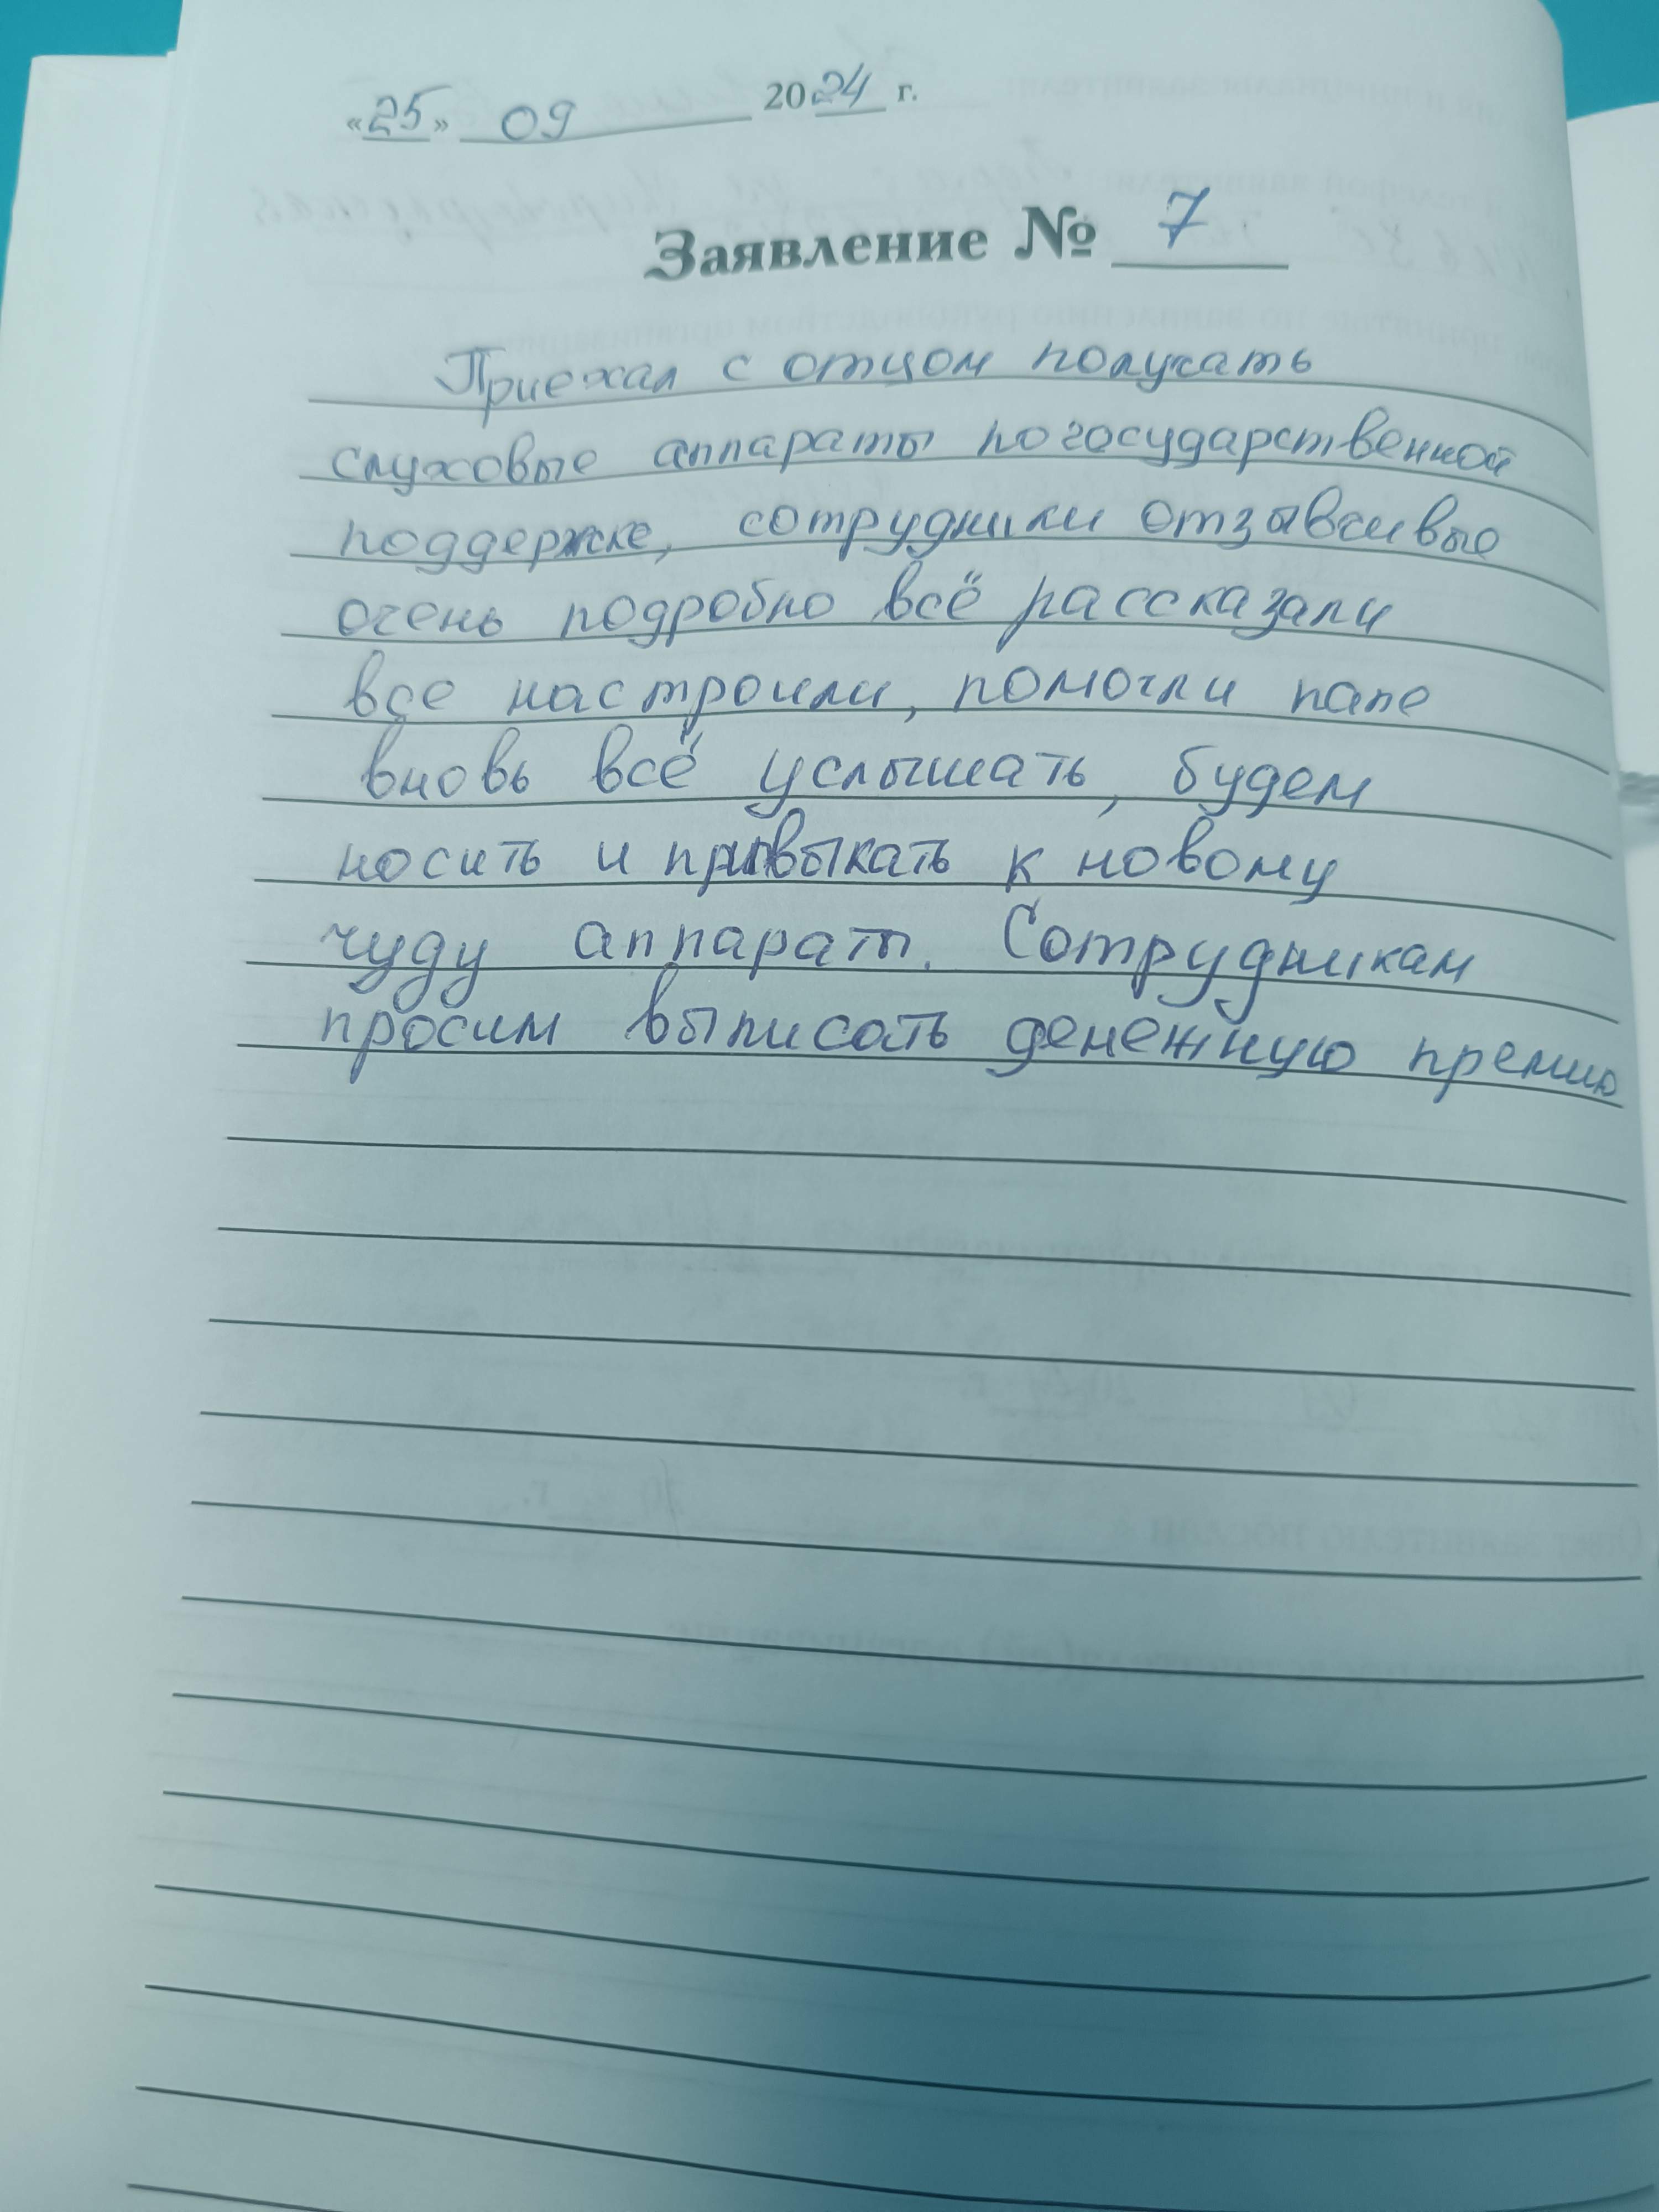 «25» 09 2024 г.
Заявление № 7
Приехал с отцом получать
слуховые аппараты по государственной
поддержке, сотрудники отзывчивые
очень подробно всё рассказали
все настроили, помогли папе
вновь всё услышать, будем
носить и привыкать к новому
чуду аппарат. Сотрудникам
просим выписать денежную премию